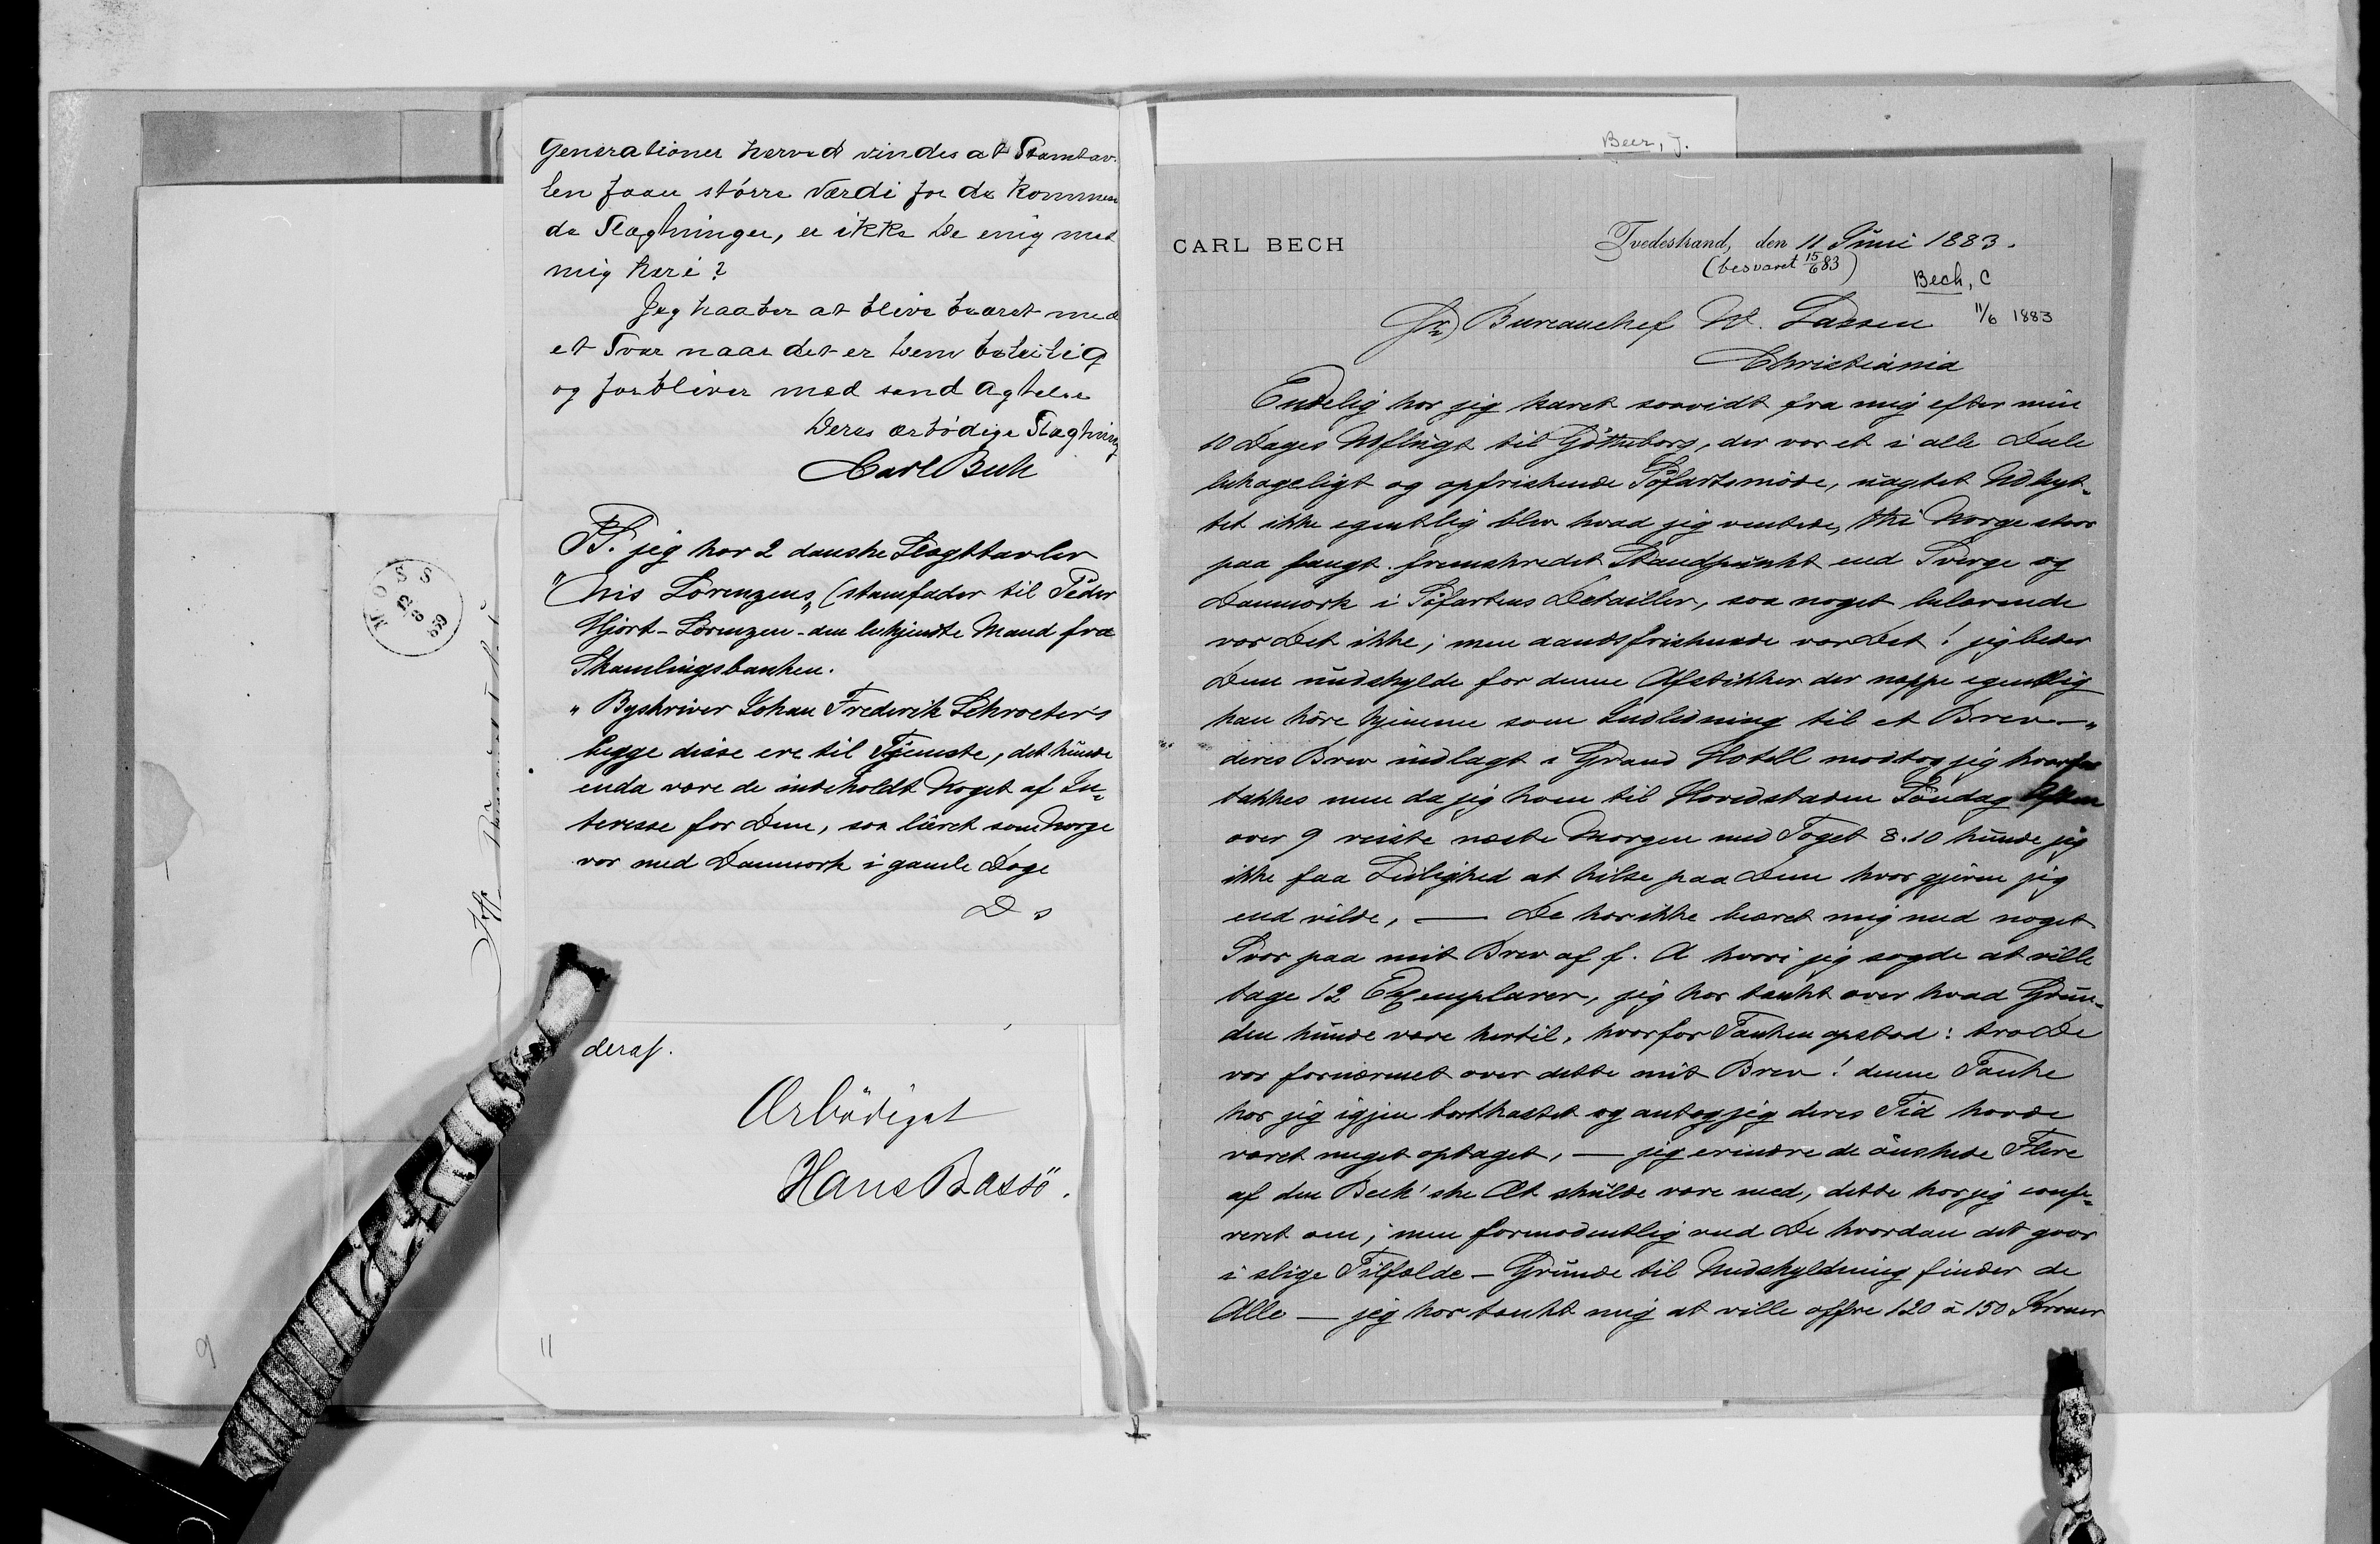 Generationer herved vindes at Stamtav-
len faaer større Værdi for de kommen
de Slægtninger, er ikke De enig med
mig heri?
Jeg haaber at blive beæret med
et Svar naar det er Dem beleilig
og forbliver med sand Agtelse
Deres ærbødige Slægtning
Carl Bech
PS. jeg har 2 danske Slægttavler
"Nis Lorenzens" (stamfader til Peder
Hjort-Lorenzen - den bekjendte Mand fra
Skamlingsbanken.
" Byskriver Johan Frederik Schroeter's
begge disse ere til Tjeneste, det kunde
enda være de indeholdt Noget af In-
teresse for Dem, saa lieret som Norge
var med Danmark i gamle Dage
D s
deraf.
Ærbödigst
Hans Bassö.
11
9
MOSS
Beer, J.
CARL BECH
Tvedestrand, den 11 Juni 1883.
(besvaret 15/6 83)
Bech, C
11/6 1883
Hr Bureauchef W. Lassen
Christiania
Endelig har jeg havet saavidt fra mig efter min
10 Dages Udflugt til Götheborg, der var et i alle Dele
behageligt og opfriskende Söfartsmöde, uagtet Udbyt-
tet ikke egentlig blev hvad jeg ventede, thi Norge staar
paa langt fremskredet Standpunkt end Sverge og
Danmark i Söfartens Detailler, saa noget belærende
var Det ikke; men aandsfriskende var Det! jeg beder
Dem undskylde for denne Afstikker der neppe egentlig
kan höre hjemme som Indledning til et Brev —"
deres Brev indlagt i Grand Hotell modtog jeg hvorfor
takkes men da jeg kom til Hovedstaden Söndag Aften
over 9 reiste næste Morgen med Toget 8.10 kunde jeg
ikke faa Leilighed at hilse paa Dem hvor gjerne jeg
end vilde, — De har ikke beæret mig med noget
Svar paa mit Brev af f. A hvori jeg sagde at ville
tage 12 Exemplarer, jeg har tænkt over hvad Grun-
den kunde være hertil, hvorfor Tanken opstod: tro De
var fornærmet over dette mit Brev! denne Tanke
har jeg igjen bortkastet og antog jeg deres Tid havde
været meget optaget, — jeg erindre de önskede Flere
af den Bech'ske Æt skulde være med, dette har jeg confe-
reret om; men formodentlig ved De hvordan det gaar
i slige Tilfælde — Grunde til Undskyldning finder de
Alle — jeg har tænkt mig at ville offre 120 à 150 Kroner